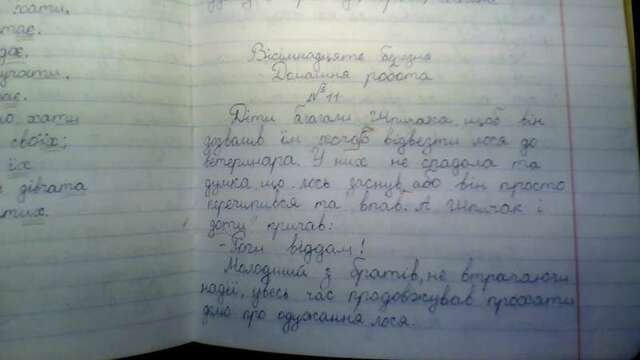 хати.
тає.
дає.
ає.
о хати
своїх;
їх
дівчата
тих.
Вісімнадцяте березня
Домашня робота
№ 11
Діти благали Шпичака щоб він
дозволив їм хоча б відвезти лося до
ветеринара. У них не спадала та
думка що лось заснув або він просто
перечипився та впав. А Шпичак і
доти кричав:
- Роги віддам!
Молодший з братів, не втрачаючи
надії, увесь час продовжував прохати
діло про одужання лося.